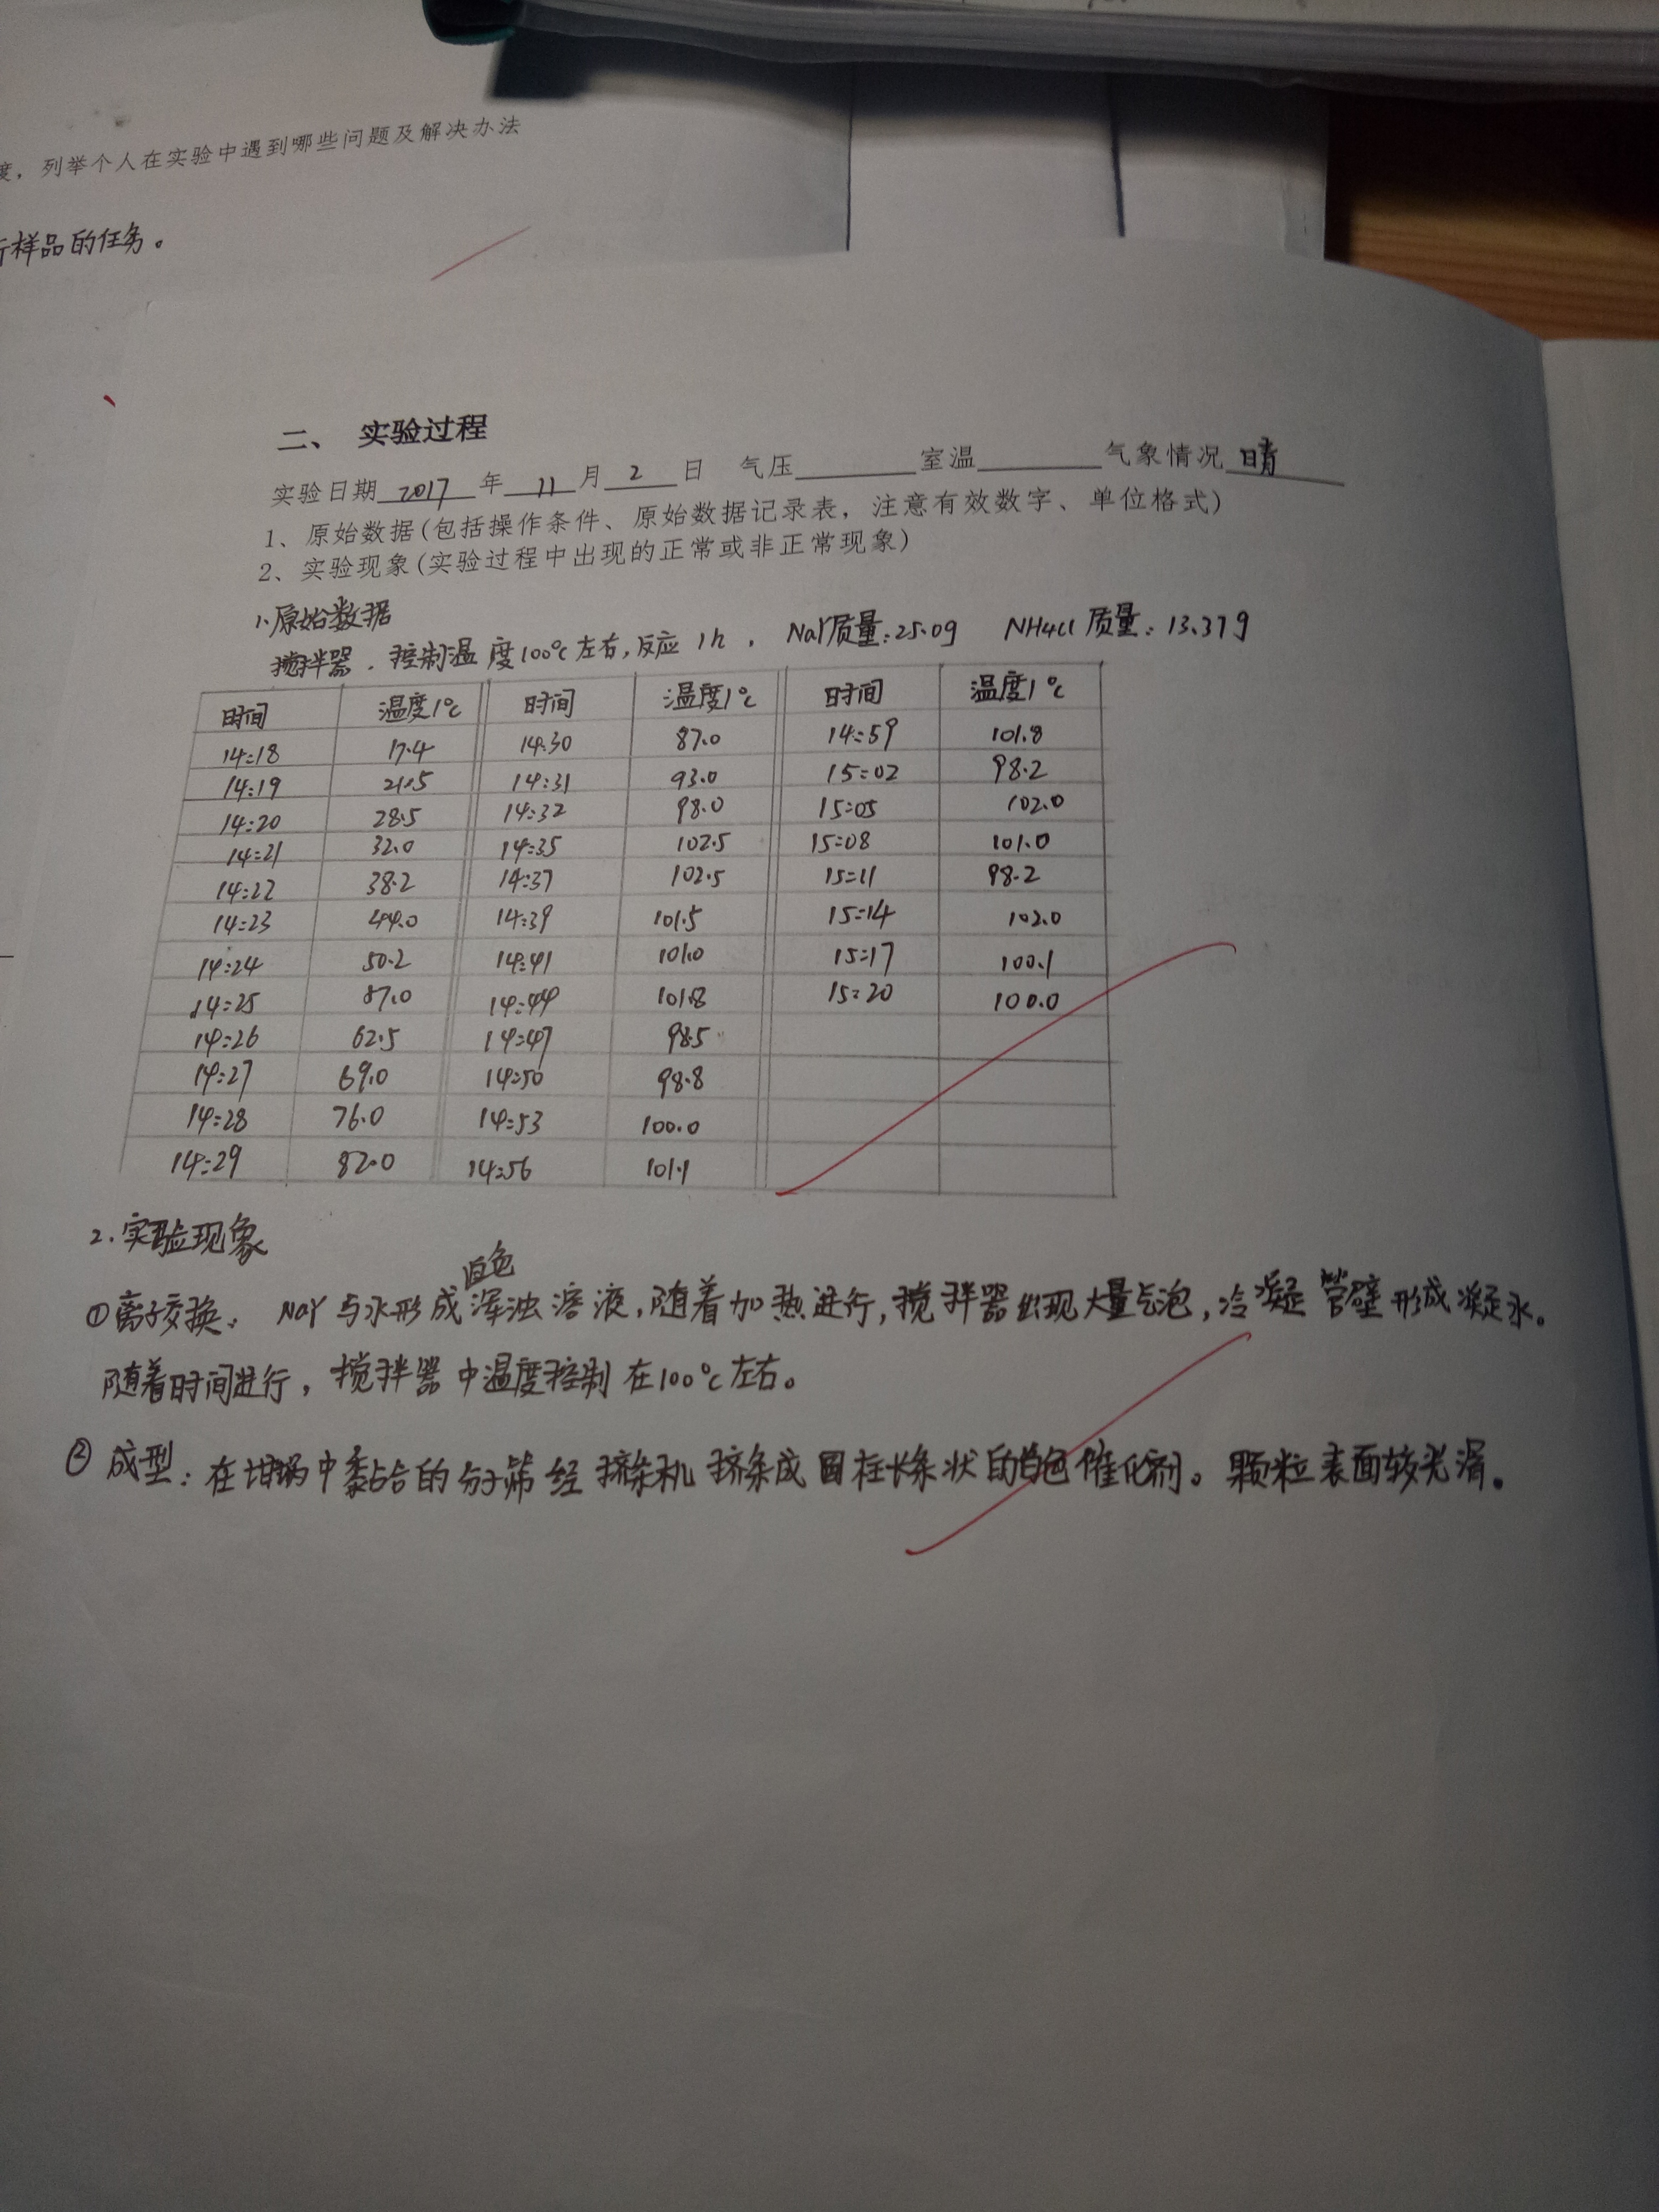 度，列举个人在实验中遇到哪些问题及解决办法
行样品的任务。
二、 实验过程
实验日期 2017 年 11 月 2 日 气压 室温 气象情况 晴
1、原始数据(包括操作条件、原始数据记录表，注意有效数字、单位格式)
2、实验现象(实验过程中出现的正常或非正常现象)
1.原始数据
搅拌器. 控制温度100℃左右,反应 1h . NaY质量:25.0g NH4Cl 质量: 13.37g
时间 温度/℃ 时间 温度/℃ 时间 温度/℃
14:18 17.4 14:30 87.0 14:59 101.8
14:19 21.5 14:31 93.0 15:02 98.2
14:20 28.5 14:32 98.0 15:05 102.0
14:21 32.0 14:35 102.5 15:08 101.0
14:22 38.2 14:37 102.5 15:11 98.2
14:23 44.0 14:39 101.5 15:14 102.0
14:24 50.2 14:41 101.0 15:17 100.1
14:25 14:44 101.8 15:20 100.0
14:26 62.5 14:47 98.5
14:27 69.0 14:50 98.8
14:28 76.0 14:53 100.0
14:29 82.0 14:56 101.1
2.实验现象
①离子交换: NaY 与水形成白色浑浊溶液,随着加热进行,搅拌器出现大量气泡,冷凝管壁形成凝水。
随着时间进行, 搅拌器中温度控制在100℃左右。
② 成型: 在坩埚中黏合的分子筛经挤条机挤条成圆柱长条状的白色催化剂。颗粒表面较光滑。